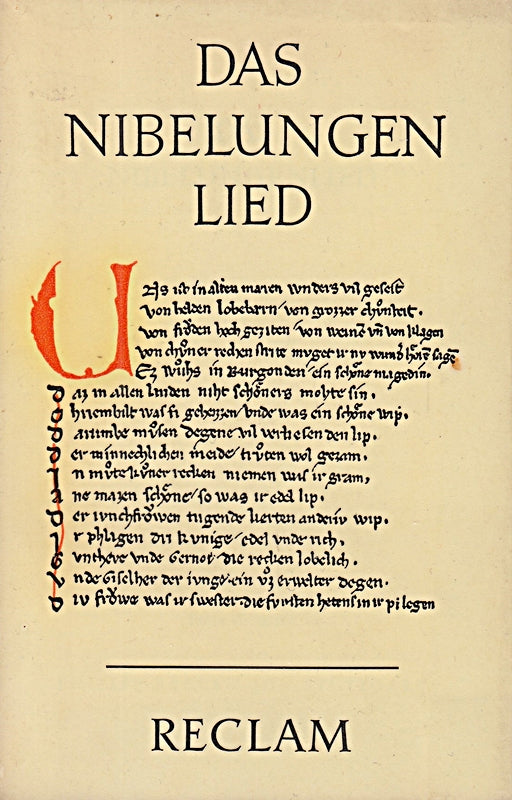 DAS
NIBELUNGEN
LIED
UNs ist in alten maren wnders vil geseit
von helden lobebern von grozzer chûnheit.
von frôden hoch geziten von weinen vñ von klagen
von chûner recken strite mvget ir nv wunder hôren sagen
Ez wûhs in Burgonden ein schône magedin.
daz in allen landen niht schôners mohte sin.
Chriemhilt was si geheizzen vnde was ein schône wip.
darumbe mûsen degene vil verliesen den lip.
der minnechlichen meide trûten wol gezam.
in mûte kûner recken niemen was ir gram,
ane mazen schône so was ir edel lip.
der ivnchfrôwen tugende zierten anderiv wip.
Ir phlagen dri kunige edel vnde rich,
Gvnthere vnde Gernot die recken lobelich.
vnde Giselher der ivnge ein ûz erwelter degen.
div frôwe was ir swester die fvrsten hetens in ir pflegen
RECLAM